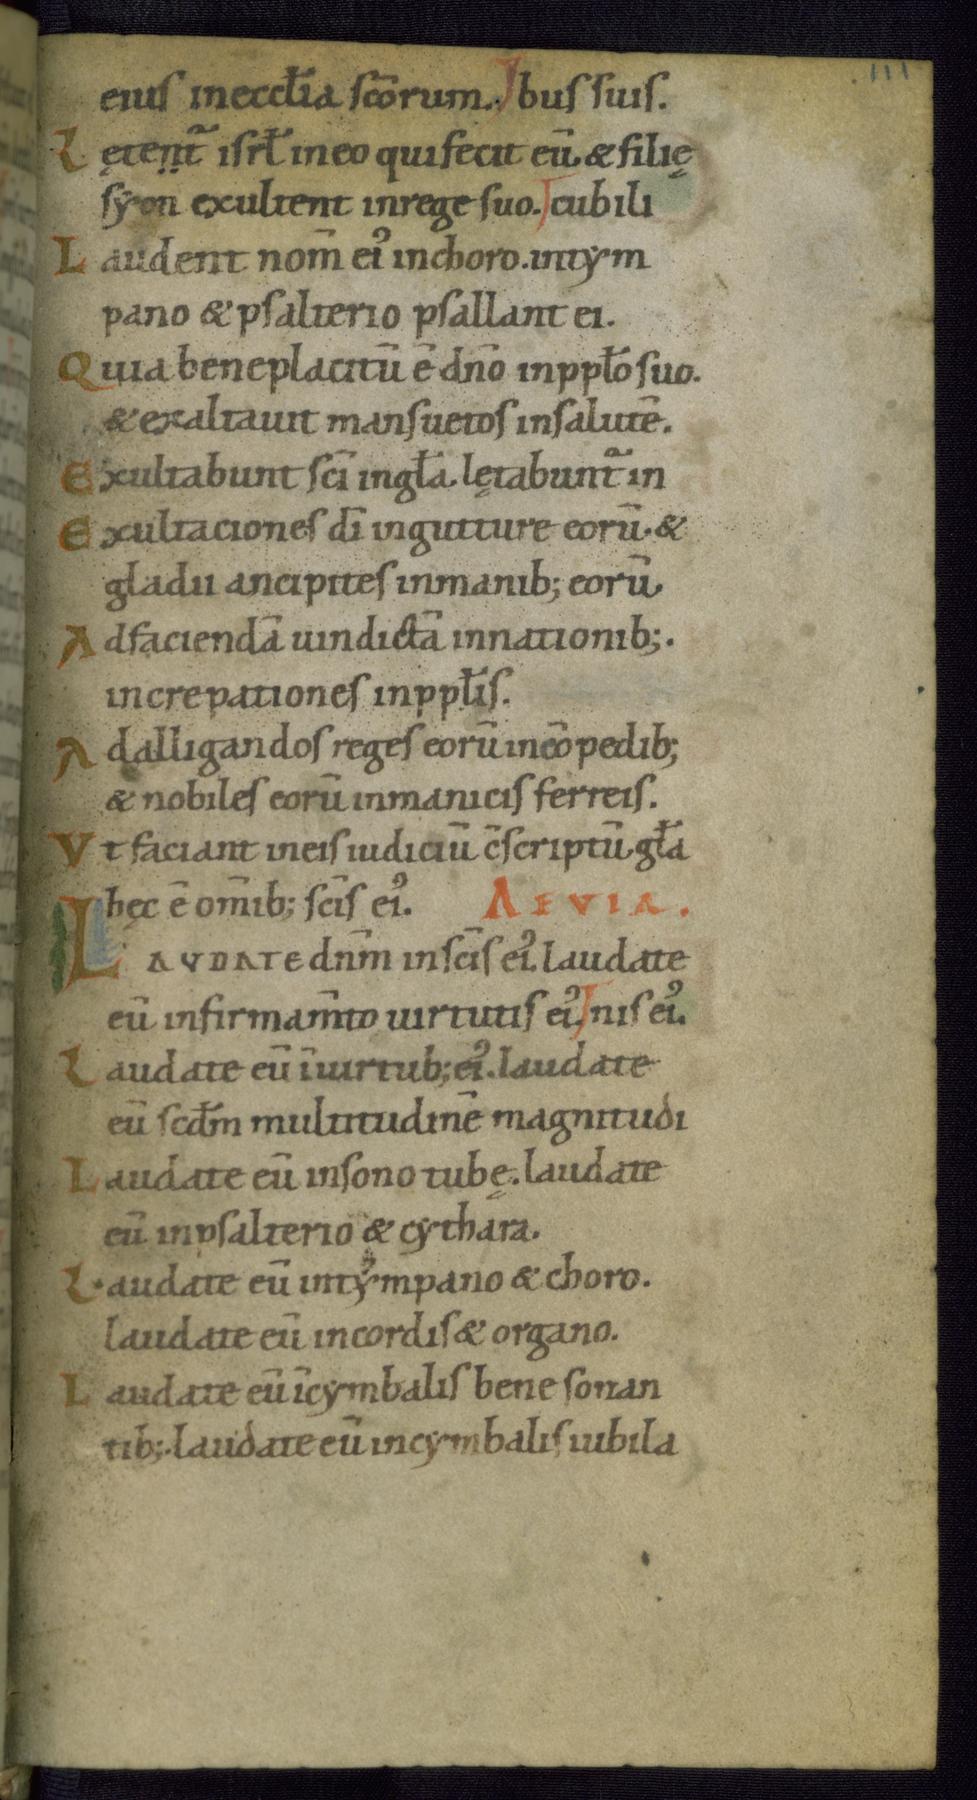 111
eius ineccl̄ia sc̄orum. bus suis.
Lętent᷑ isrl̄ ineo qui fecit eū. & filię
sẏon exultent inrege suo. cubili
Laudent nom̄ ei᾽ inchoro. intẏm
pano & psalterio psallant ei.
Quia beneplacitū ē dn̄o inppl̄o suo.
& exaltauit mansuetos insalutē.
Exultabunt sc̄i ingl̄a. lętabunt᷑ in
Exultaciones dī ingutture eorū. &
gladii ancipites inmanib; eorū
Adfaciendā uindictā innationib;.
increpationes inppl̄is.
Adalligandos reges eorū incō pedib;
& nobiles eorū inmanicis ferreis.
Vt faciant ineis iudiciū c̄scriptū. gl̄a
hęc ē om̄ib; sc̄is ei᾽. AEVIA.
LAVDATE dn̄m in sc̄is ei᾽. laudate
eū infirmam̄to uirtutis ei᾽. nis ei᾽.
Laudate eū īuirtub; ei᾽. laudate
eū scd̄m multitudinē magnitudi
Laudate eū insono tubę. laudate
eū inpsalterio & cythara.
Laudate eū intẏmpano & choro.
laudate eū incordis & organo.
Laudate eū īcẏmbalis bene sonan
tib;. laudate eū incymbalis iubila